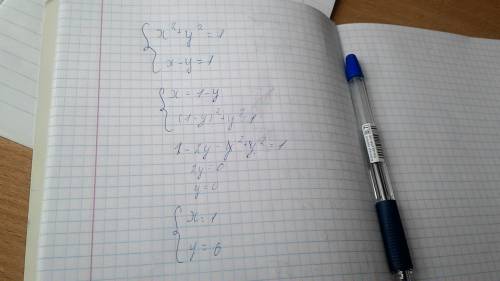 x² + y² = 1
x - y = 1
x = 1 - y
(1 - y)² + y² = 1
1 - 2y - y² + y² = 1
2y = 0
y = 0
x = 1
y = 0